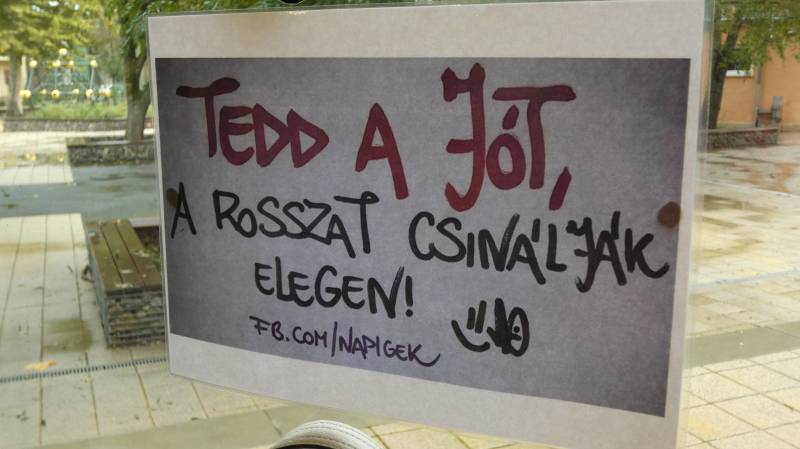 TEDD A JÓT,
A ROSSZAT CSINÁLJÁK
ELEGEN!
FB.COM/NAPIGEK